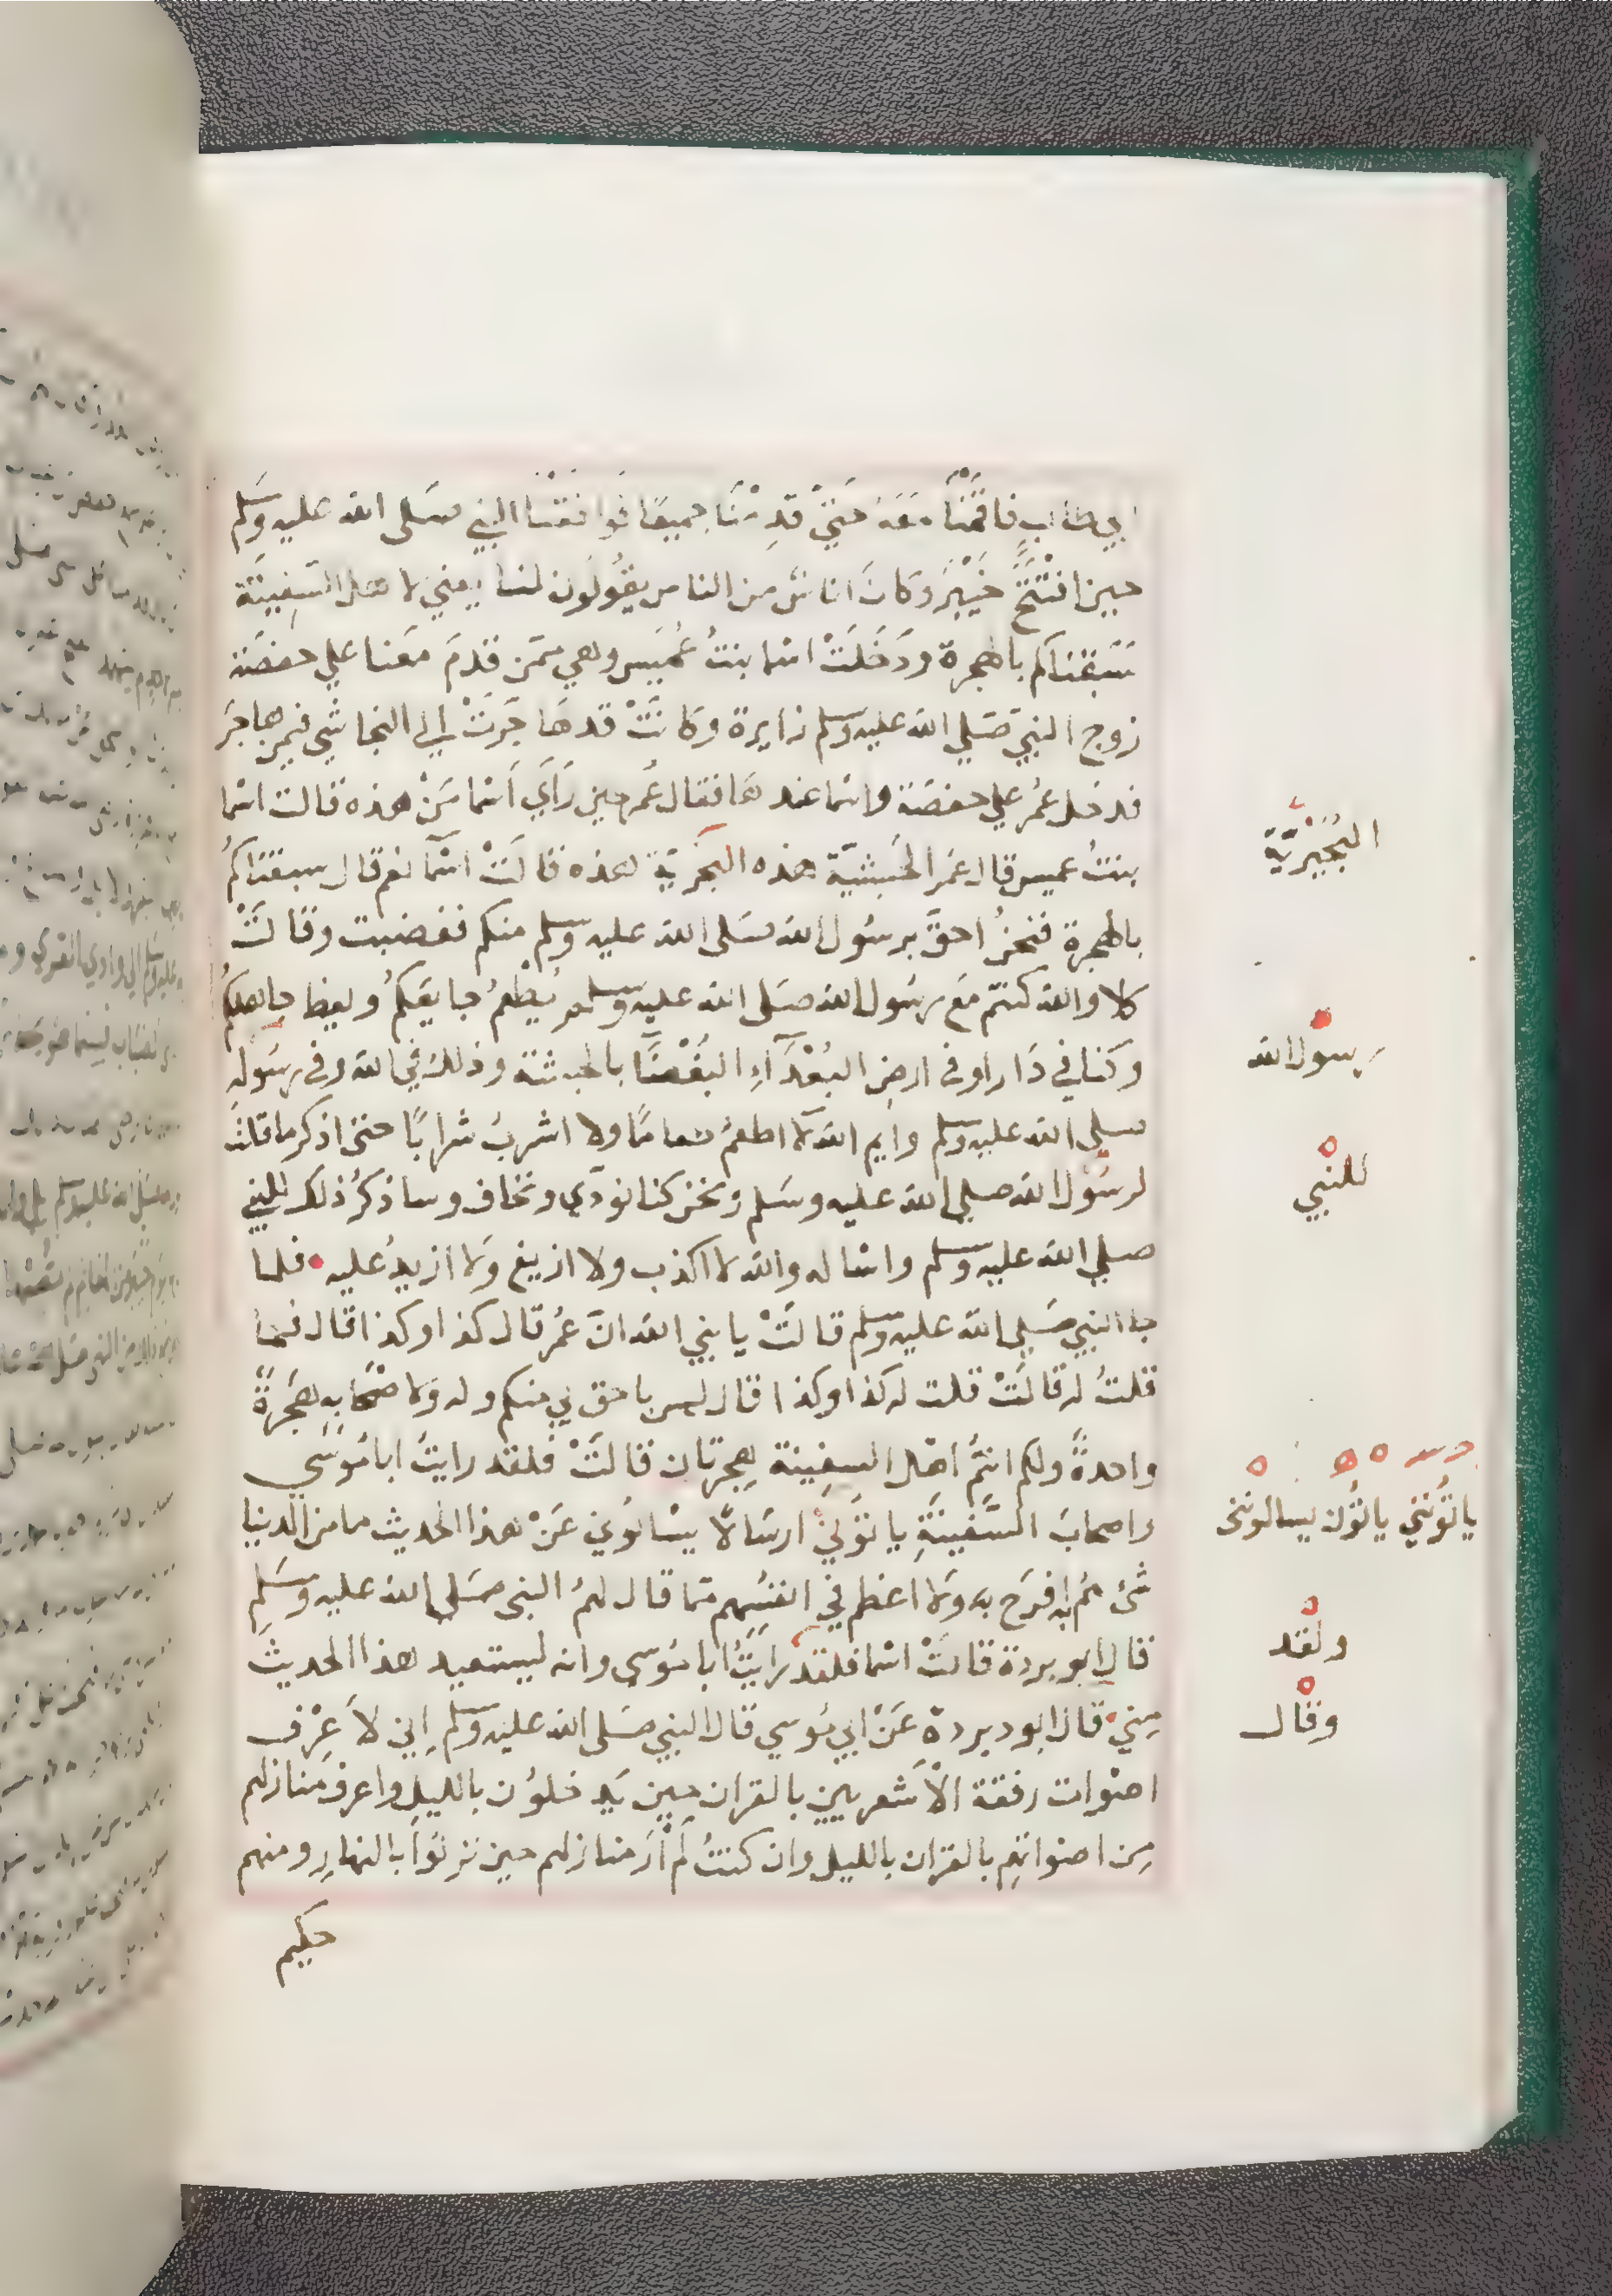 ابي طالب فاقمنا معه حتي قدمنا جميعا فوافقنا النبي صلى الله عليه وسلم
حين افتتح خيبر وكان اناس من الناس يقولون لنا يعني لاهل السفينة
سبقناكم بالهجرة ودخلت اسما بنت عميس وهي ممن قدم معنا علي حفصة
زوج النبي صلي الله عليه وسلم زايرة وكانت قد هاجرت الي النجاشي فيمن هاجر
فدخل عمر علي حفصة واسما عندها فقال عمر حين راي اسما من هذه قالت اسما
بنت عميس قال عمر الحبشية هذه البحرية هذه قالت اسما نعم قال سبقناكم
بالهجرة فنحن احق برسول الله صلى الله عليه وسلم منكم فغضبت وقالت
كلا والله كنتم مع رسول الله صلى الله عليه وسلم يطعم جايعكم ويعظ جاهلكم
وكنا في دار او في ارض البعدآء البغضآ بالحبشة وذلك في الله وفي رسوله
صلي الله عليه وسلم وايم الله لا اطعم طعاما ولا اشرب شرابا حتي اذكر ما قلت
لرسول الله صلي الله عليه وسلم ونحن كنا نوذي ونخاف وساذكر ذلك للنبي
صلي الله عليه وسلم واساله والله لا اكذب ولا ازيغ ولا ازيد عليه فلما
جا النبي صلي الله عليه وسلم قالت يا نبي الله ان عمر قال كذا وكذا قال فما
قلت له قالت قلت له كذا وكذا قال ليس باحق بي منكم وله ولاصحابه هجرة
واحدة ولكم انتم اهل السفينة هجرتان قالت فلقد رايت ابا موسي
واصحاب السفينة ياتوني ارسالا يسالوني عن هذا الحديث ما من الدنيا
شئ هم به افرح به ولا اعظم في انفسهم مما قال لهم النبي صلى الله عليه وسلم
قال ابو بردة قالت اسما فلقد رايت ابا موسي وانه ليستعيد هذا الحديث
مني قال ابو بردة عن ابي موسي قال النبي صلى الله عليه وسلم اني لاعرف
اصوات رفقة الاشعريين بالقران حين يدخلون بالليل واعرف منازلهم
من اصواتهم بالقران بالليل وان كنت لم ار منازلهم حين نزلوا بالنهار ومنهم
حكيم
البحيرية
رسول الله
للنبي
ياتونني ياتون يسالونني
ولقد
وقال